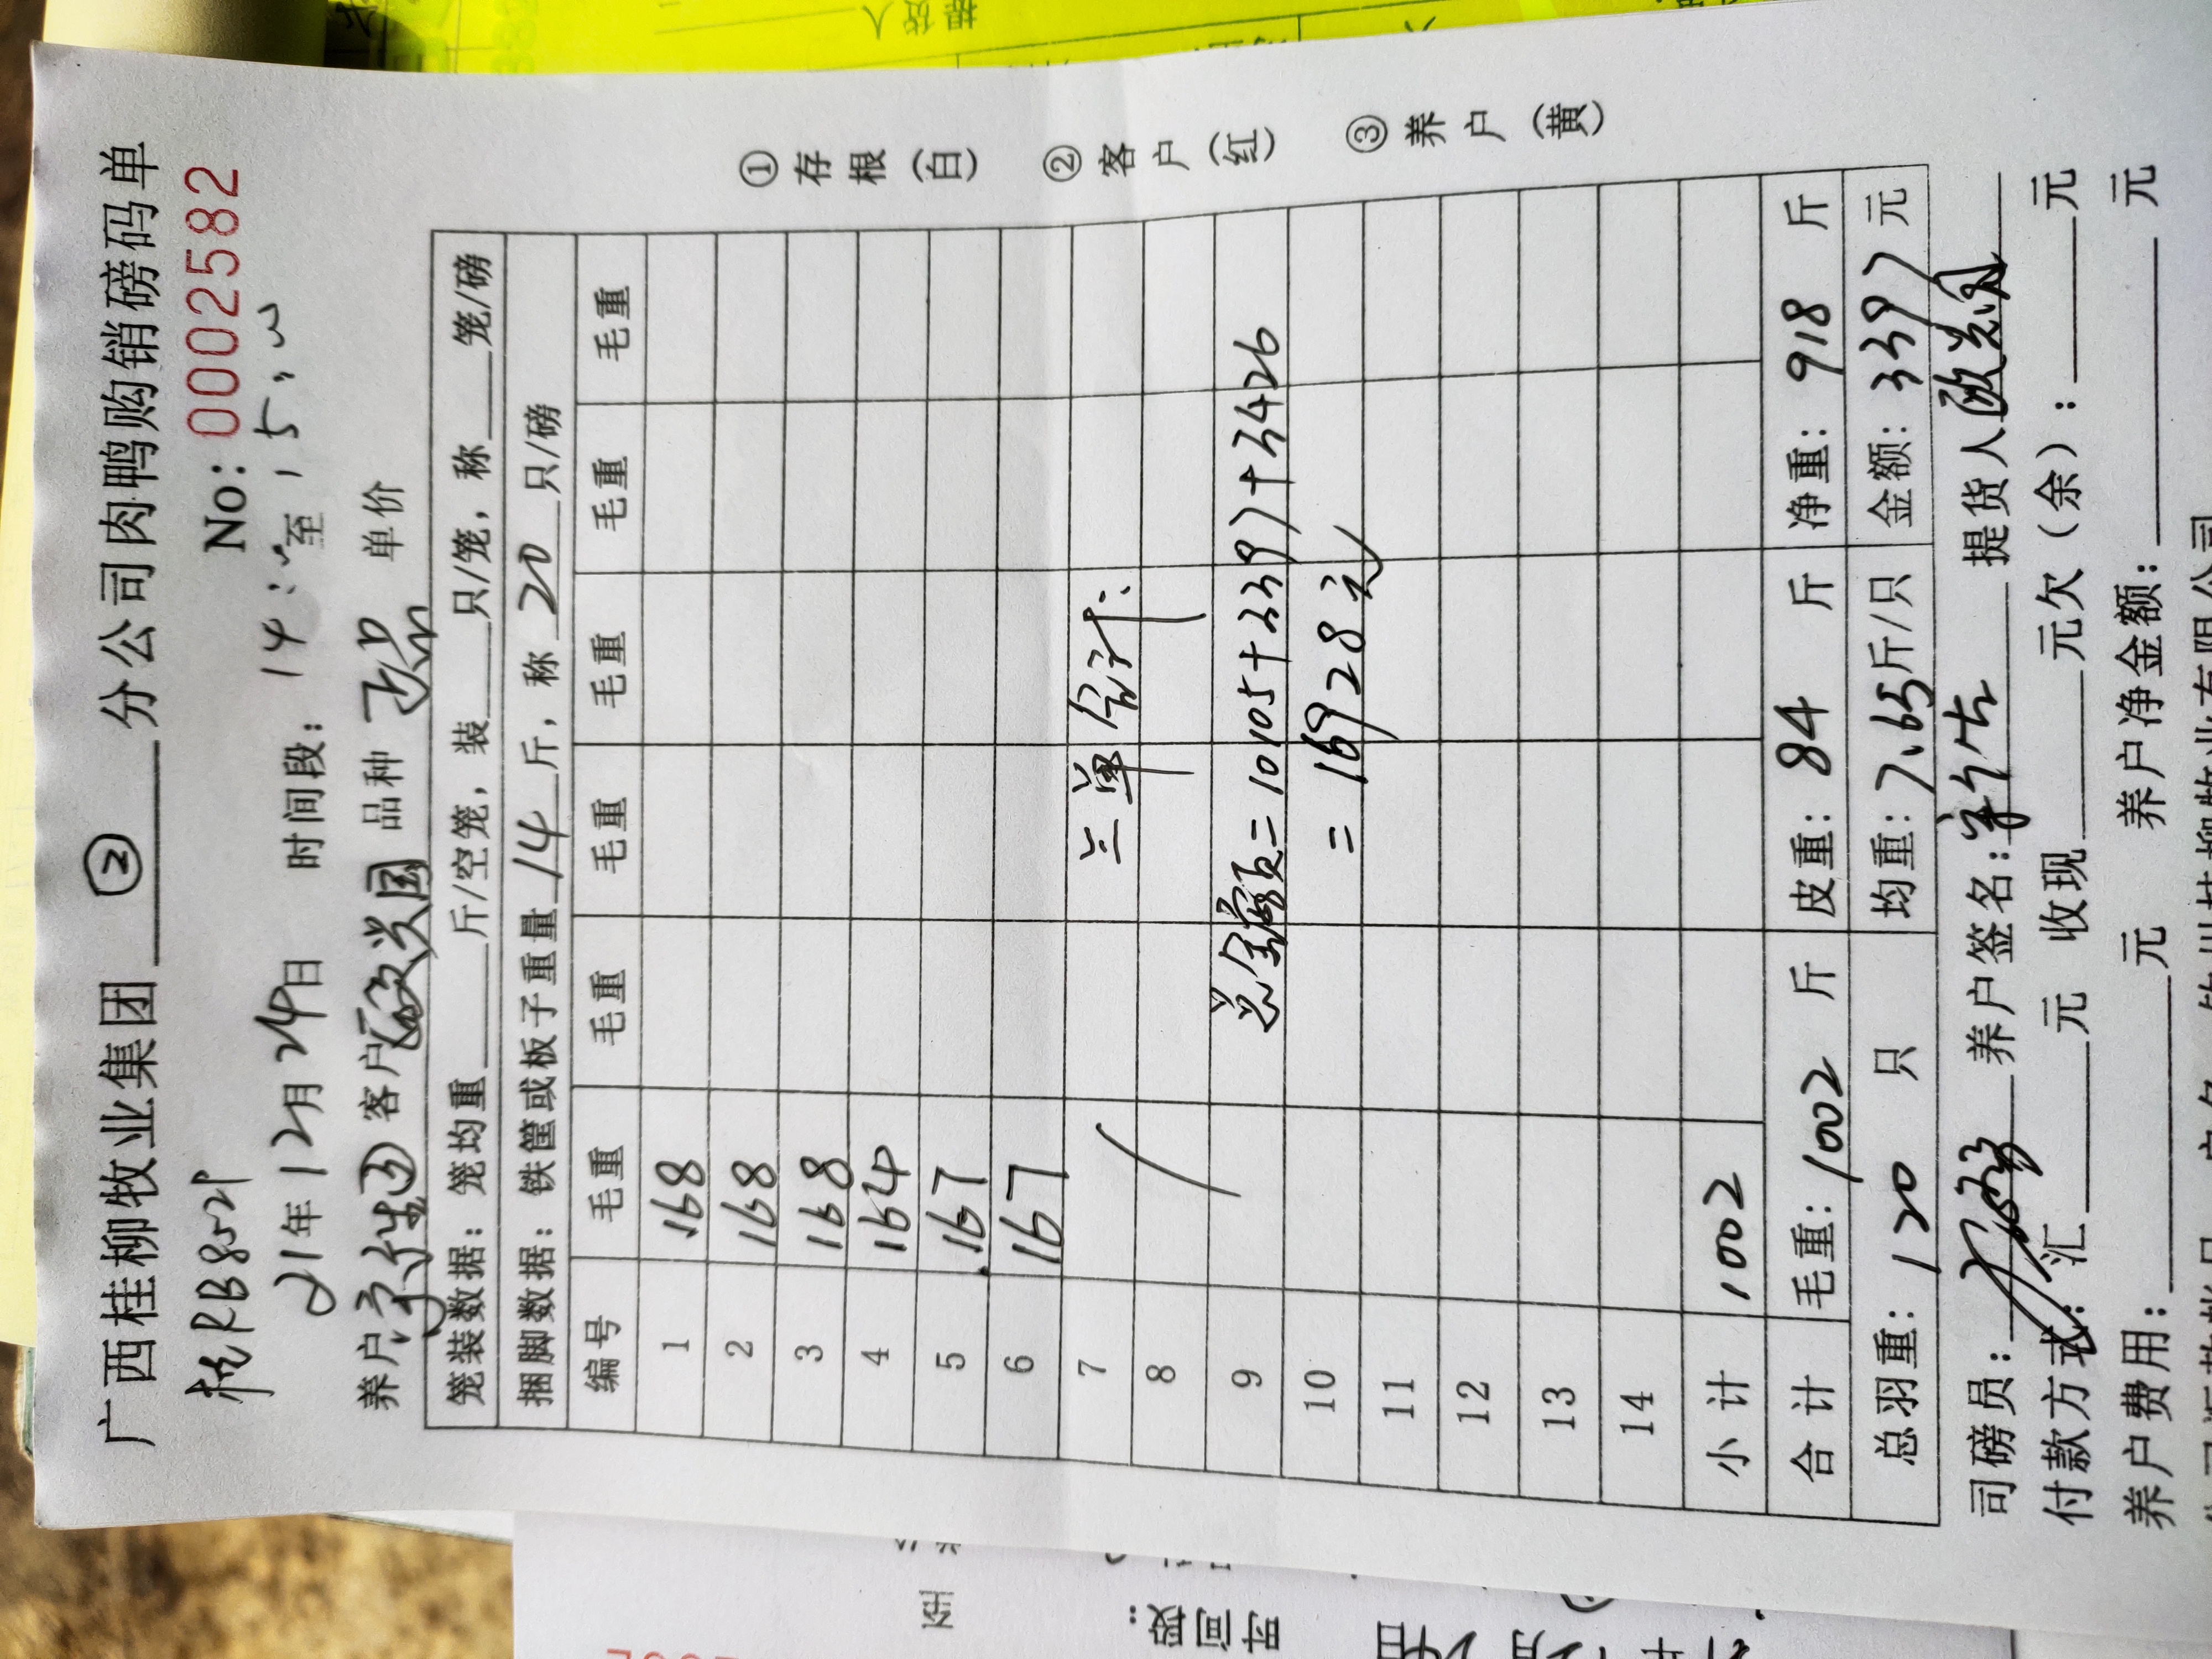 广西桂柳牧业集团 ② 分公司肉鸭购销磅码单
No: 0002582
桂RB852
21年12月24日 时间段: 14: 至 15:
养户 客户 欧兴国 品种 单价
笼装数据: 笼均重 斤/空笼, 装 只/笼, 称 笼/磅
捆脚数据: 铁筐或板子重量 14 斤, 称 20 只/磅
编号 毛重 毛重 毛重 毛重 毛重 毛重
1 168
2 168
3 168
4 164
5 167
6 167
7 三单合计:
8
9 总金额=10105+3397+3426
10 =16928元
11
12
13
14
小计 1002
合计 毛重: 1002 斤 皮重: 84 斤 净重: 918 斤
总羽重: 120 只 均重: 7.65斤/只 金额: 3397元
司磅员: 养户签名: 提货人 欧兴国
付款方式: 汇 元 收现 元欠(余): 元
养户费用: 元 养户净金额: 元
①存根(白) ②客户(红) ③养户(黄)
提货人
时间段: 至